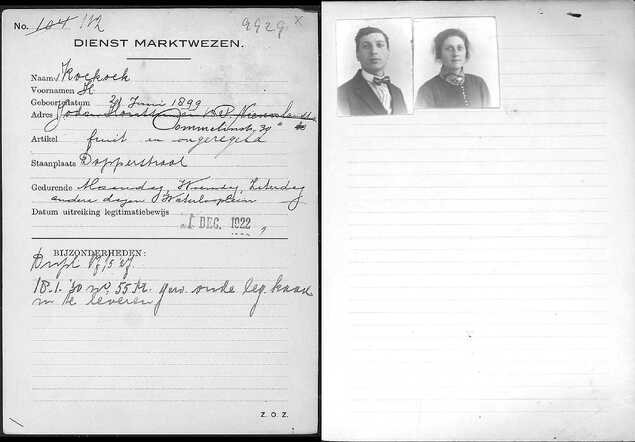 No. 104 112 9929 x
DIENST MARKTWEZEN.
Naam Koekoek
Voornamen H
Geboortedatum 29 Juni 1899
Adres Joden Houttuinen
Commelinstr. 30
Artikel fruit en ongeregeld
Staanplaats Dapperstraat
Gedurende Maandag, Woensdag, Zaterdag
andere dagen Waterlooplein
Datum uitreiking legitimatiebewijs 1 DEC. 1922
BIJZONDERHEDEN:
Dupl.
18.1.'30 no. 55 M. gew. oude leg. kaart
in te leveren
Z. O. Z.